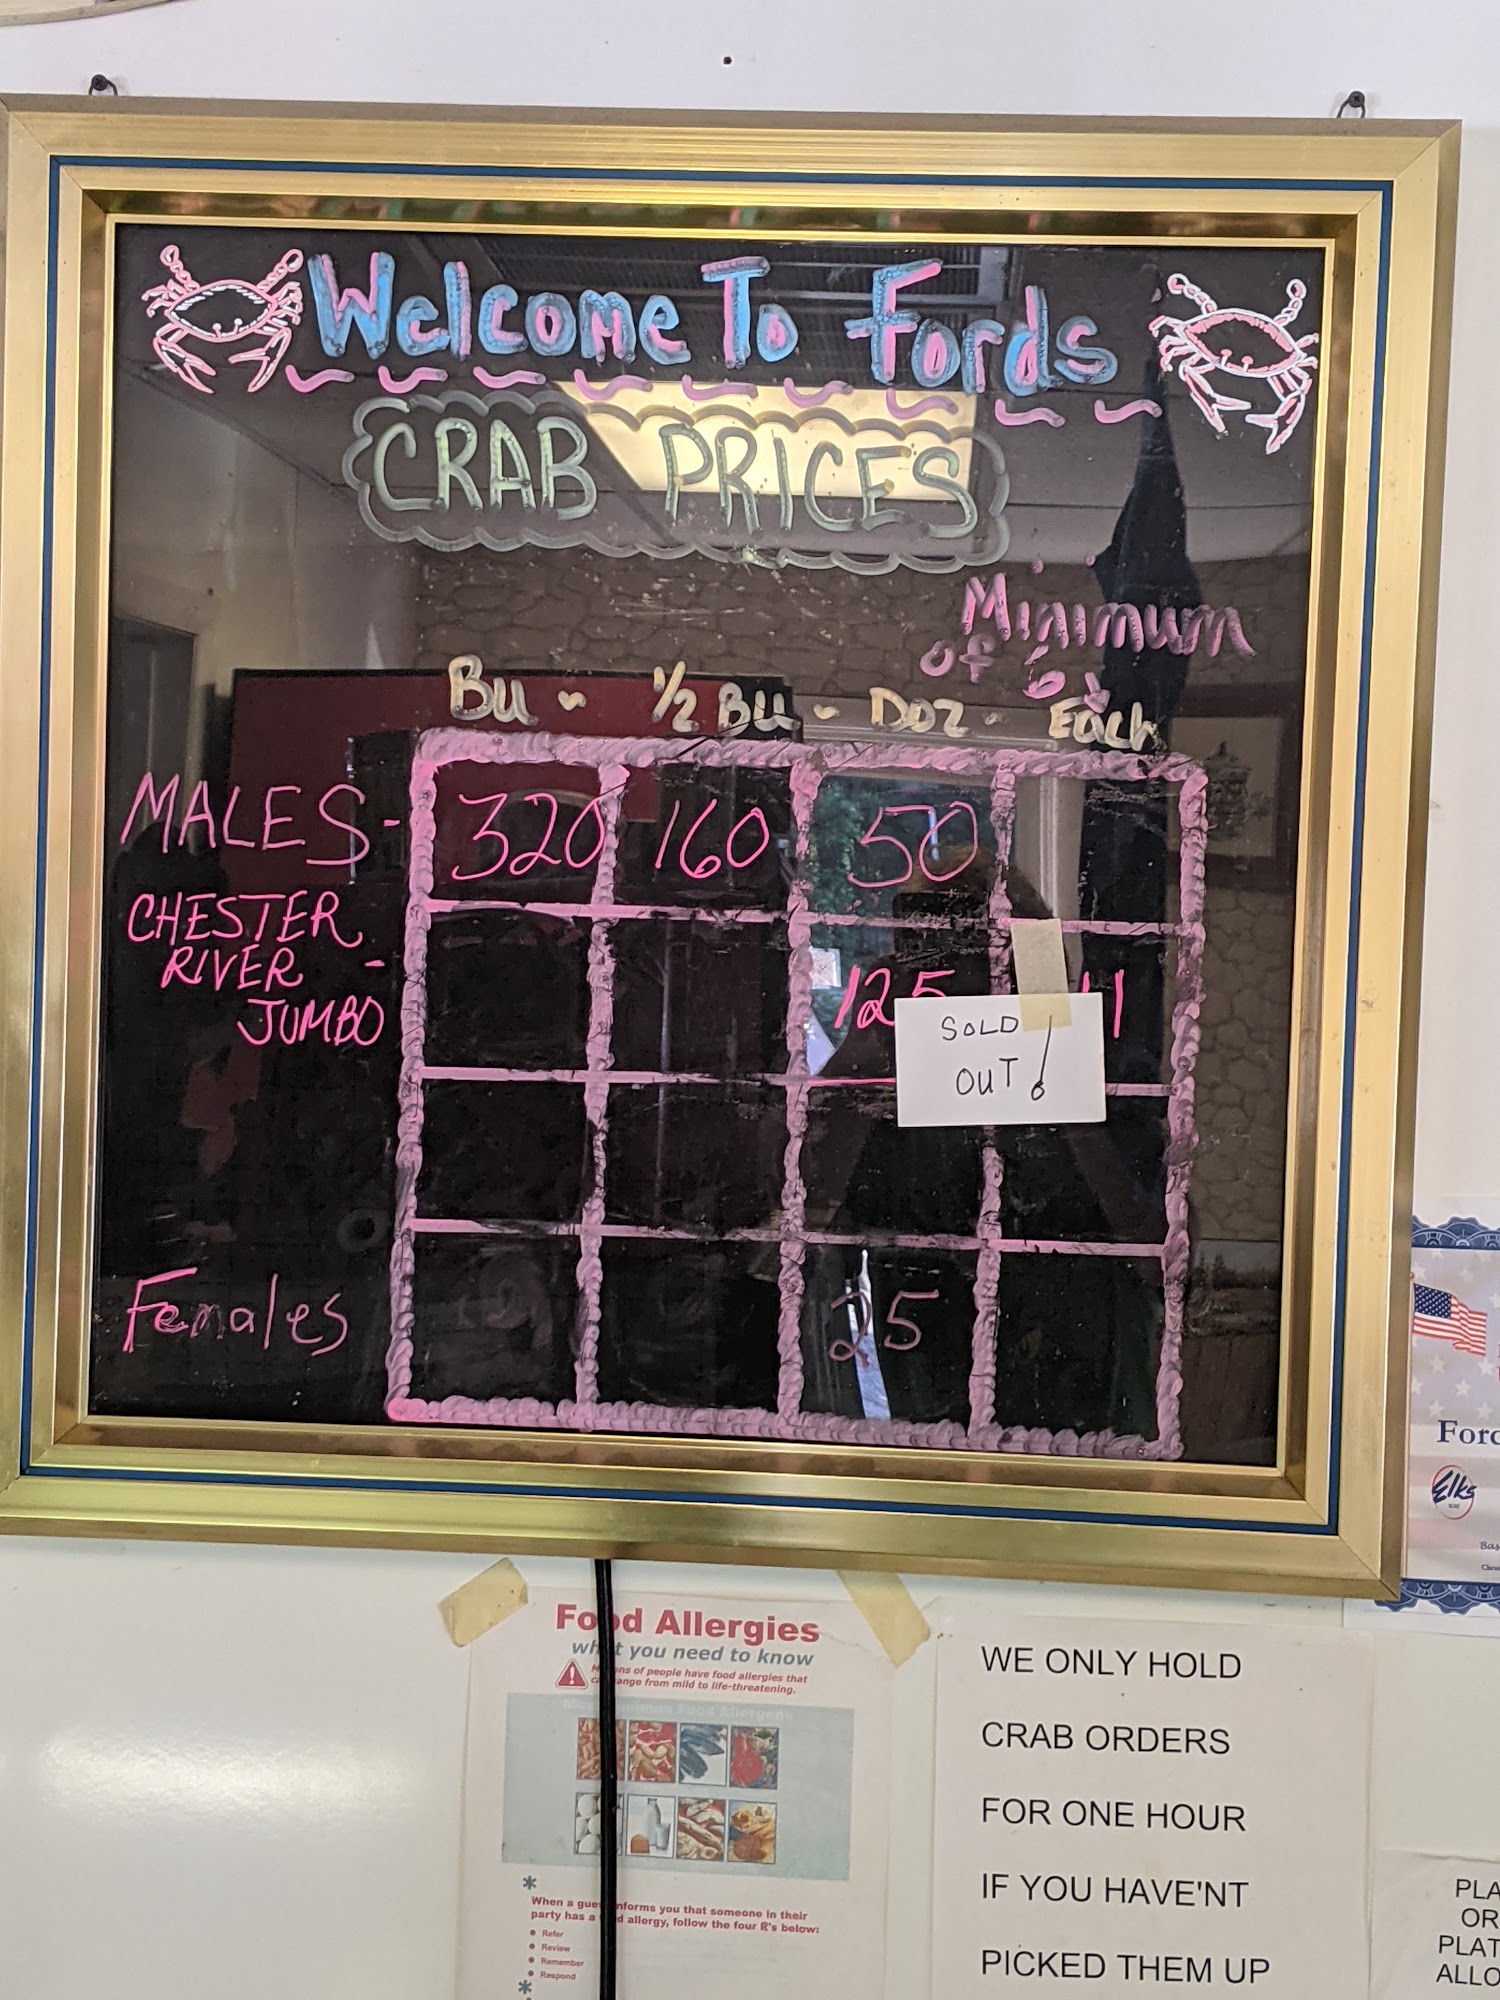 Welcome To Fords
CRAB PRICES
Minimum
of 6
Bu - 1/2 Bu - Doz - Each
MALES- 320 160 50
CHESTER
RIVER -
JUMBO
125 11
SOLD
OUT!
Females 25
Food Allergies
what you need to know
of people have food allergies that
range from mild to life-threatening.
Common Food Allergens
When a guest informs you that someone in their
party has a food allergy, follow the four R's below:
Refer
Review
Remember
Respond
WE ONLY HOLD
CRAB ORDERS
FOR ONE HOUR
IF YOU HAVE'NT
PICKED THEM UP
Elks